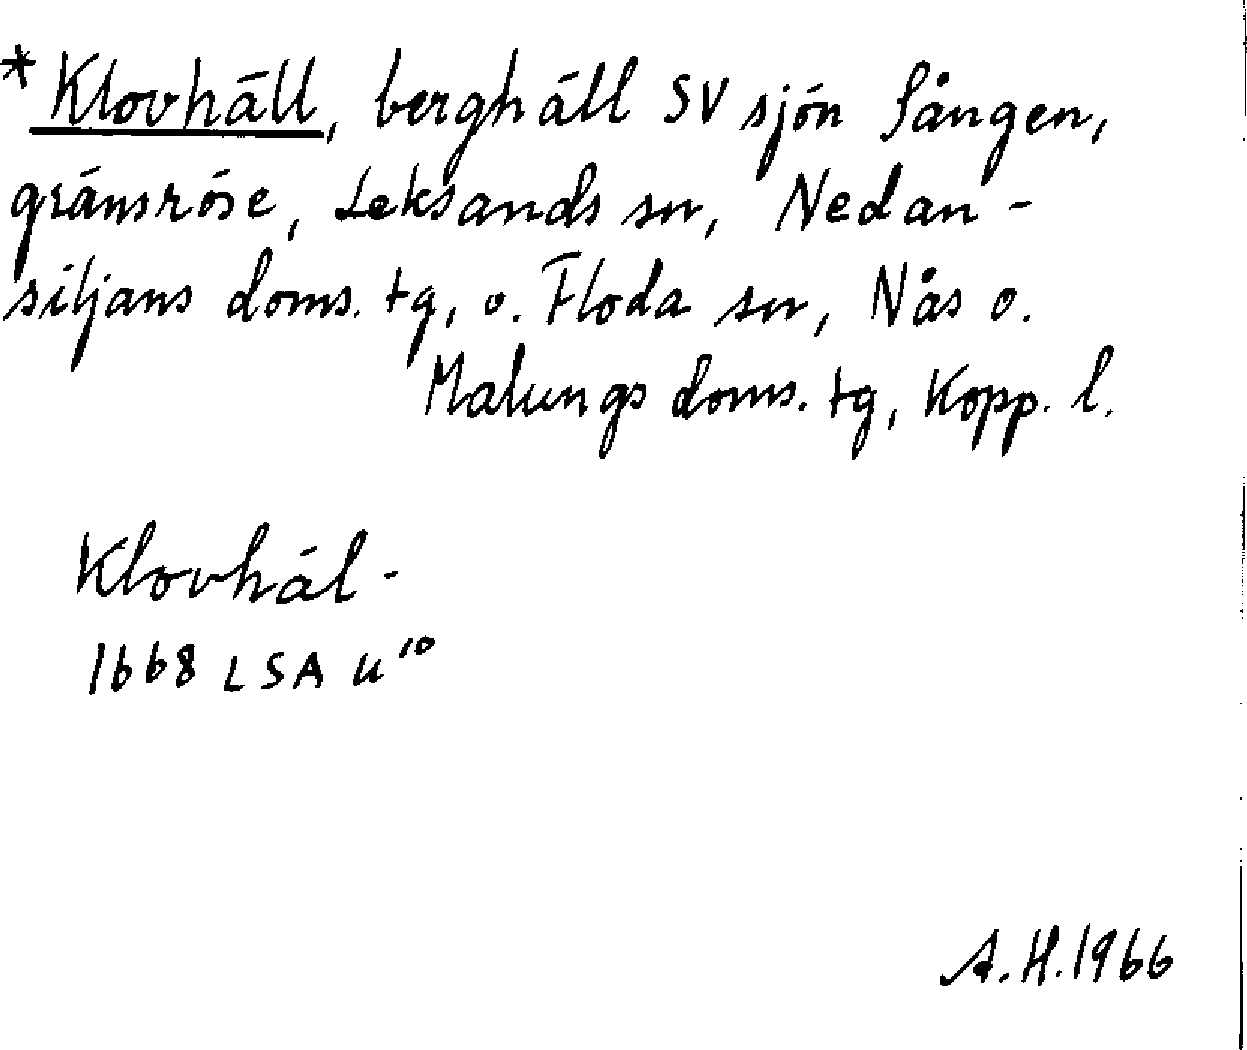 *Klovhäll, berghäll SV sjön Sången,
gränsröse, Leksands sn, Nedan-
siljans doms. tg, o. Floda sn, Nås o.
Malungs doms. tg, Kopp. l.
Klovhäl-
1668 LSA u¹⁰
A.H. 1966